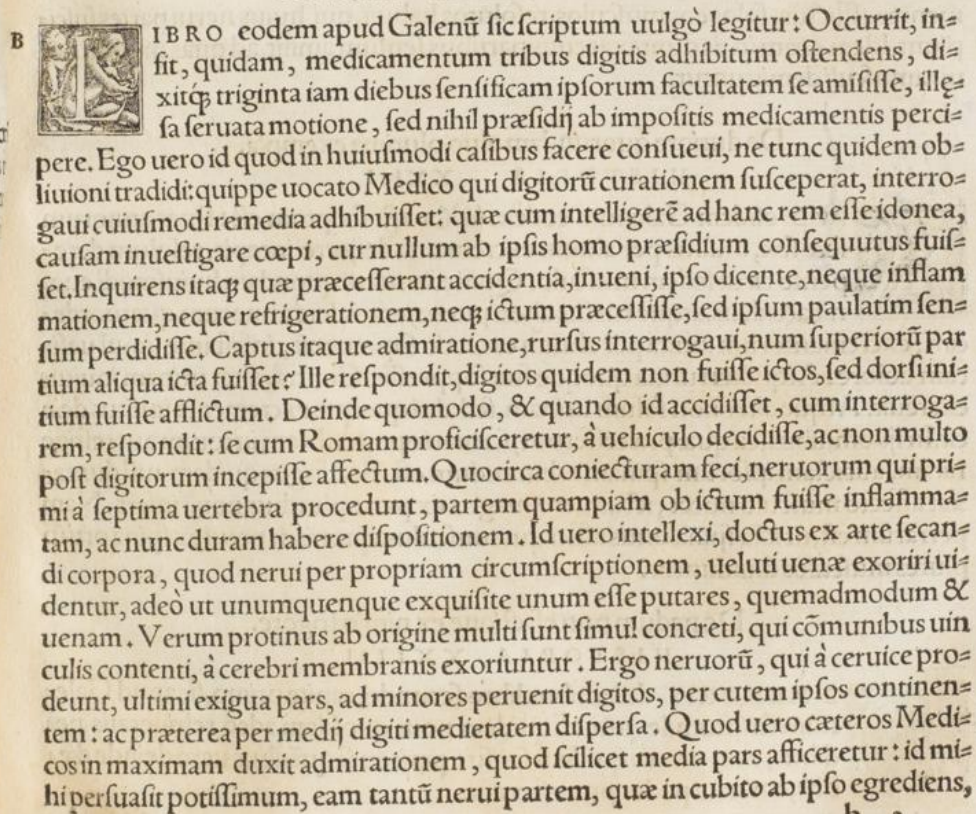 B
LIBRO eodem apud Galenū sic scriptum uulgò legitur: Occurrit, in=
fit, quidam, medicamentum tribus digitis adhibitum ostendens, di=
xitq́ꝫ triginta iam diebus sensificam ipsorum facultatem se amisisse, illę=
sa seruata motione, sed nihil præsidij ab impositis medicamentis perci=
pere. Ego uero id quod in huiusmodi casibus facere consueui, ne tunc quidem ob=
liuioni tradidi: quippe uocato Medico qui digitorū curationem susceperat, interro=
gaui cuiusmodi remedia adhibuisset: quæ cum intelligerē ad hanc rem esse idonea,
causam inuestigare cœpi, cur nullum ab ipsis homo præsidium consequutus fuis=
set. Inquirens itaqꝫ quæ præcesserant accidentia, inueni, ipso dicente, neque inflam
mationem, neque refrigerationem, neqꝫ ictum præcessisse, sed ipsum paulatim sen=
sum perdidisse. Captus itaque admiratione, rursus interrogaui, num superiorū par
tium aliqua icta fuisset? Ille respondit, digitos quidem non fuisse ictos, sed dorsi ini=
tium fuisse afflictum. Deinde quomodo, & quando id accidisset, cum interroga=
rem, respondit: se cum Romam proficisceretur, à uehiculo decidisse, ac non multo
post digitorum incepisse affectum. Quocirca coniecturam feci, neruorum qui pri=
mi à septima uertebra procedunt, partem quampiam ob ictum fuisse inflamma=
tam, ac nunc duram habere dispositionem. Id uero intellexi, doctus ex arte secan=
di corpora, quod nerui per propriam circumscriptionem, ueluti uenæ exoriri ui=
dentur, adeò ut unumquenque exquisite unum esse putares, quemadmodum &
uenam. Verum protinus ab origine multi sunt simul concreti, qui cōmunibus uin
culis contenti, à cerebri membranis exoriuntur. Ergo neruorū, qui à ceruice pro=
deunt, ultimi exigua pars, ad minores peruenit digitos, per cutem ipsos continen=
tem: ac præterea per medij digiti medietatem dispersa. Quod uero cæteros Medi=
cos in maximam duxit admirationem, quod scilicet media pars afficeretur: id mi=
hi persuasit potissimum, eam tantū nerui partem, quæ in cubito ab ipso egrediens,